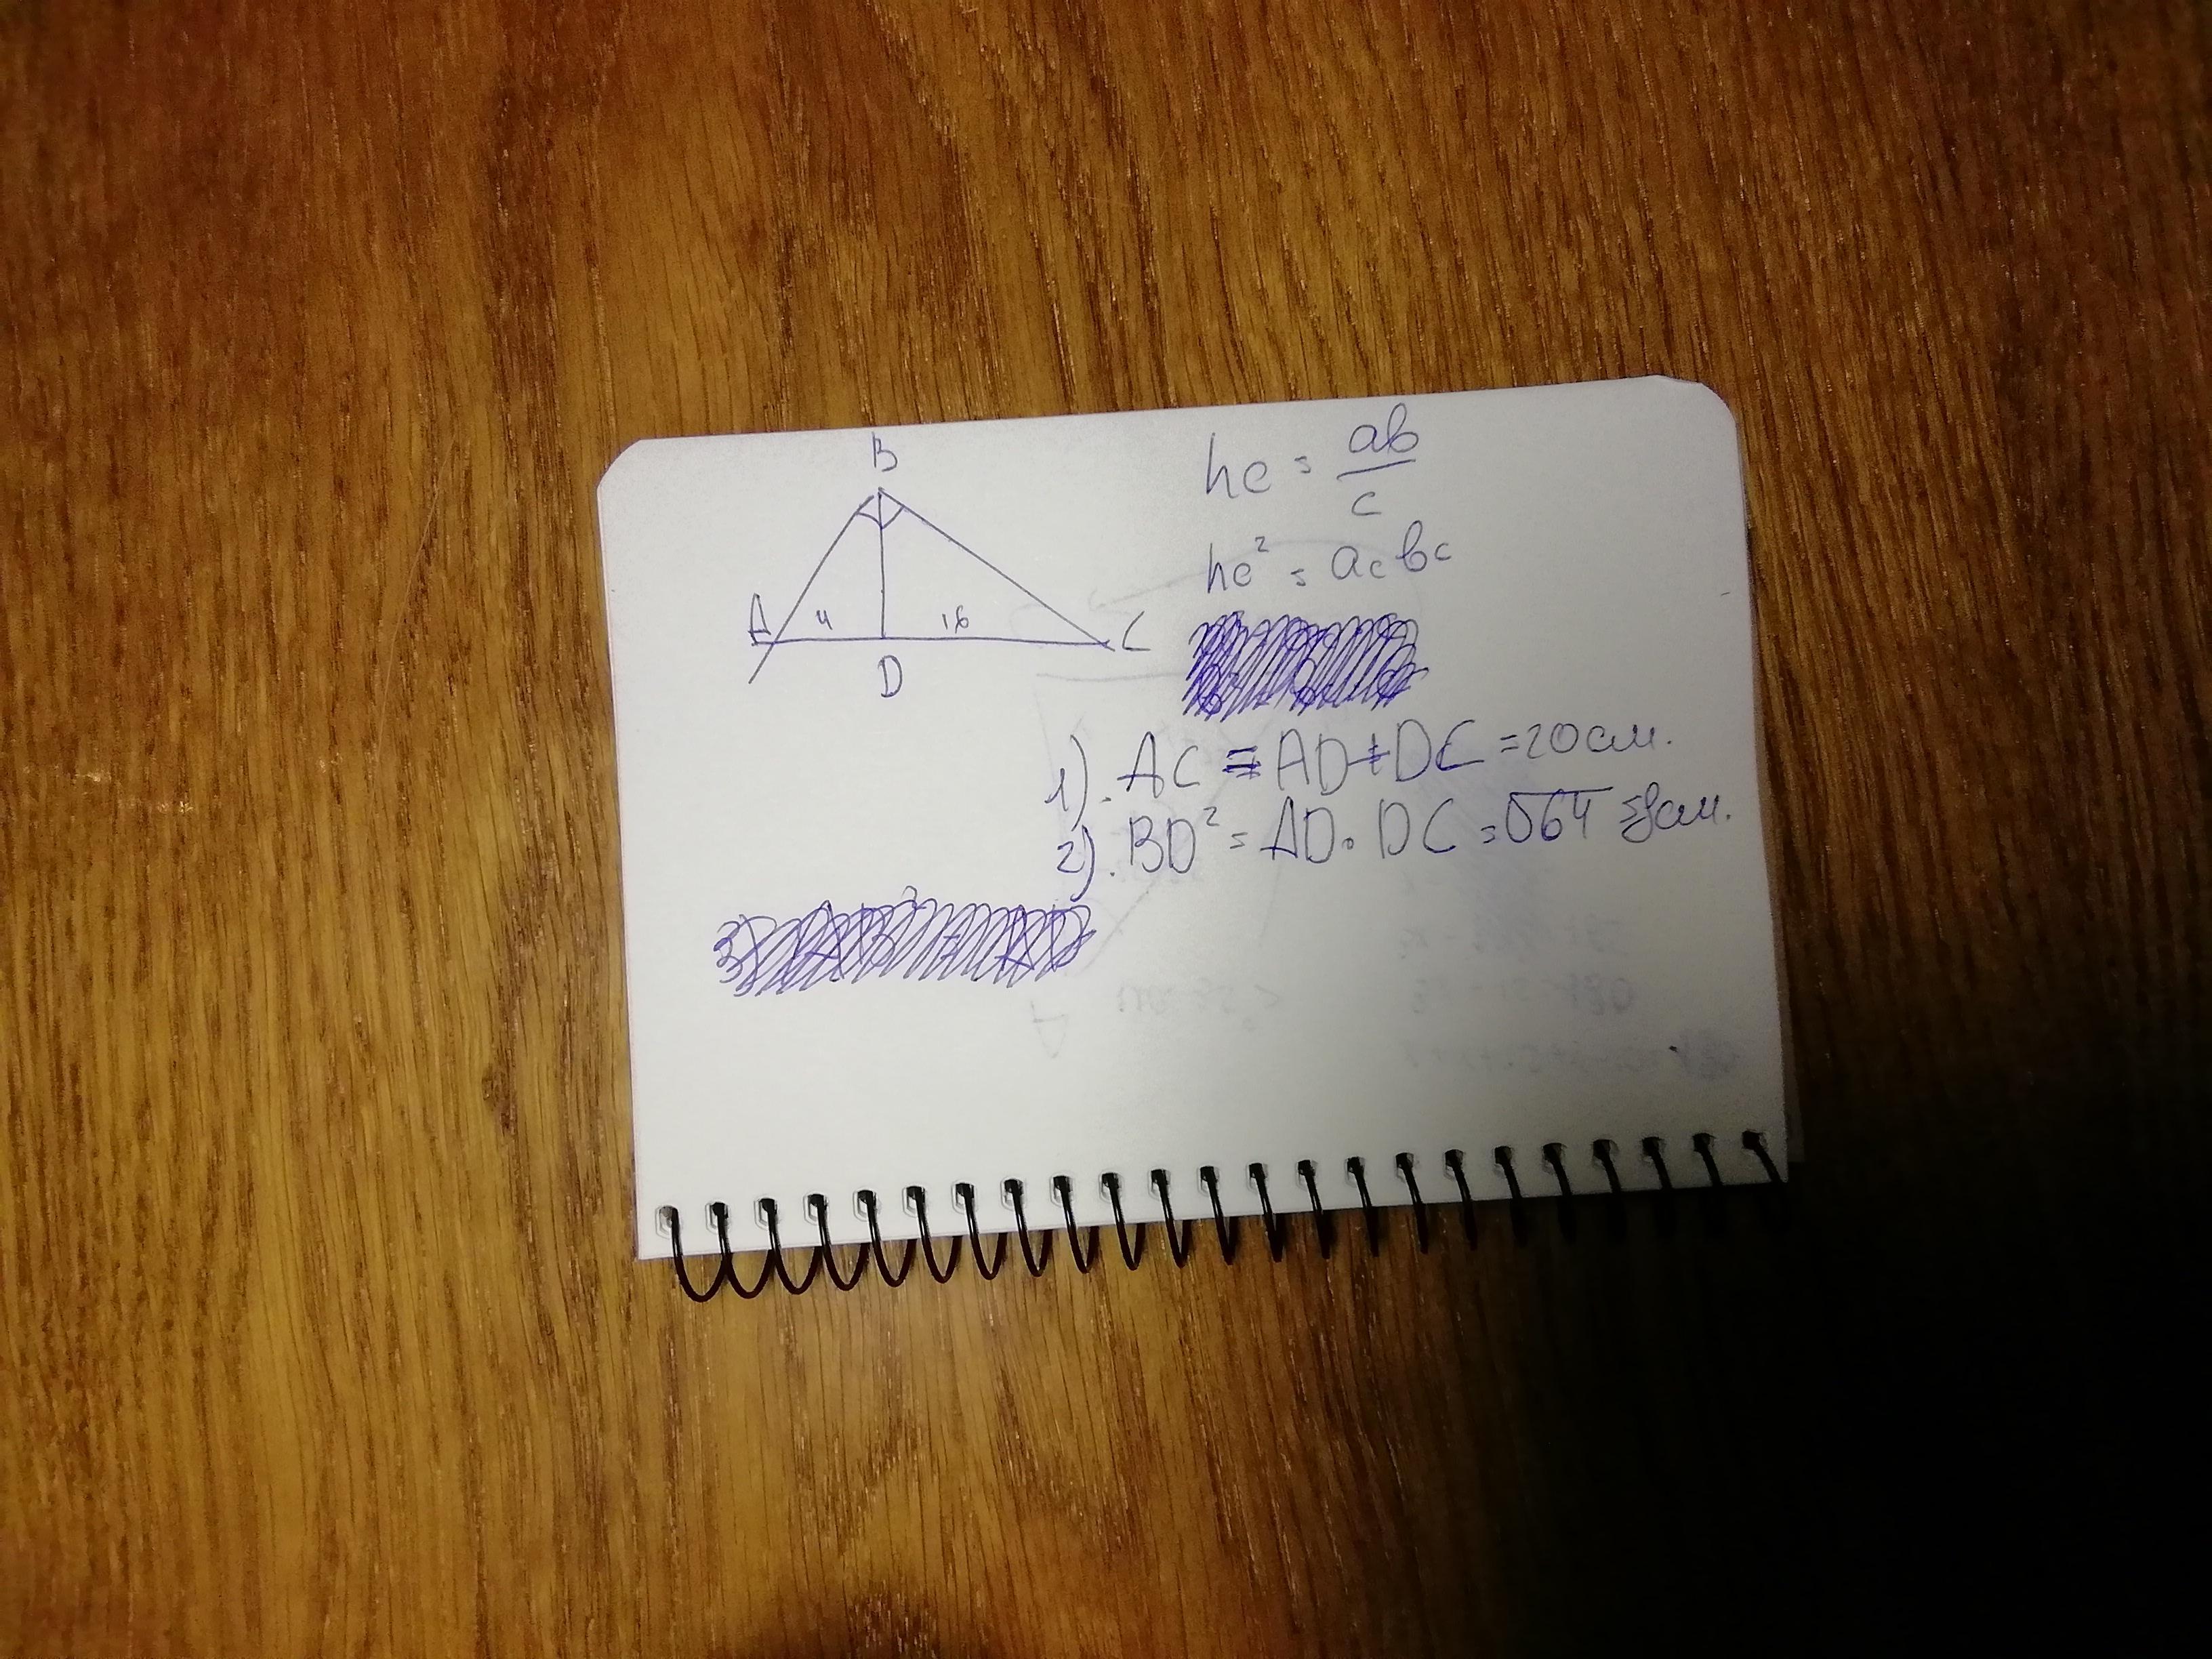 B
A 4 16 C
D
hc = ab/c
hc² = ac bc
1). AC = AD+DC = 20 см.
2). BD² = AD · DC = √64 = 8 см.
3)